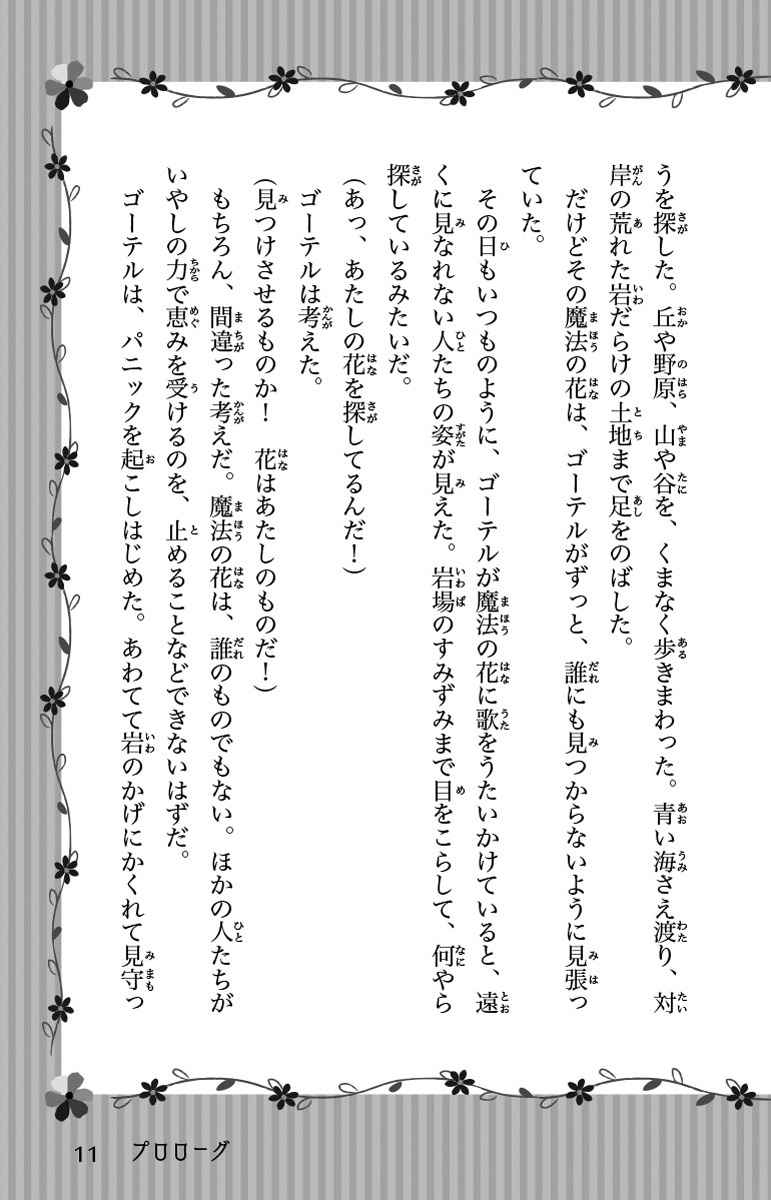 うを探した。丘や野原、山や谷を、くまなく歩きまわった。青い海さえ渡り、対
岸の荒れた岩だらけの土地まで足をのばした。
だけどその魔法の花は、ゴーテルがずっと、誰にも見つからないように見張っ
ていた。
その日もいつものように、ゴーテルが魔法の花に歌をうたいかけていると、遠
くに見なれない人たちの姿が見えた。岩場のすみずみまで目をこらして、何やら
探しているみたいだ。
(あっ、あたしの花を探してるんだ!)
ゴーテルは考えた。
(見つけさせるものか! 花はあたしのものだ!)
もちろん、間違った考えだ。魔法の花は、誰のものでもない。ほかの人たちが
いやしの力で恵みを受けるのを、止めることなどできないはずだ。
ゴーテルは、パニックを起こしはじめた。あわてて岩のかげにかくれて見守っ
11 プロローグ